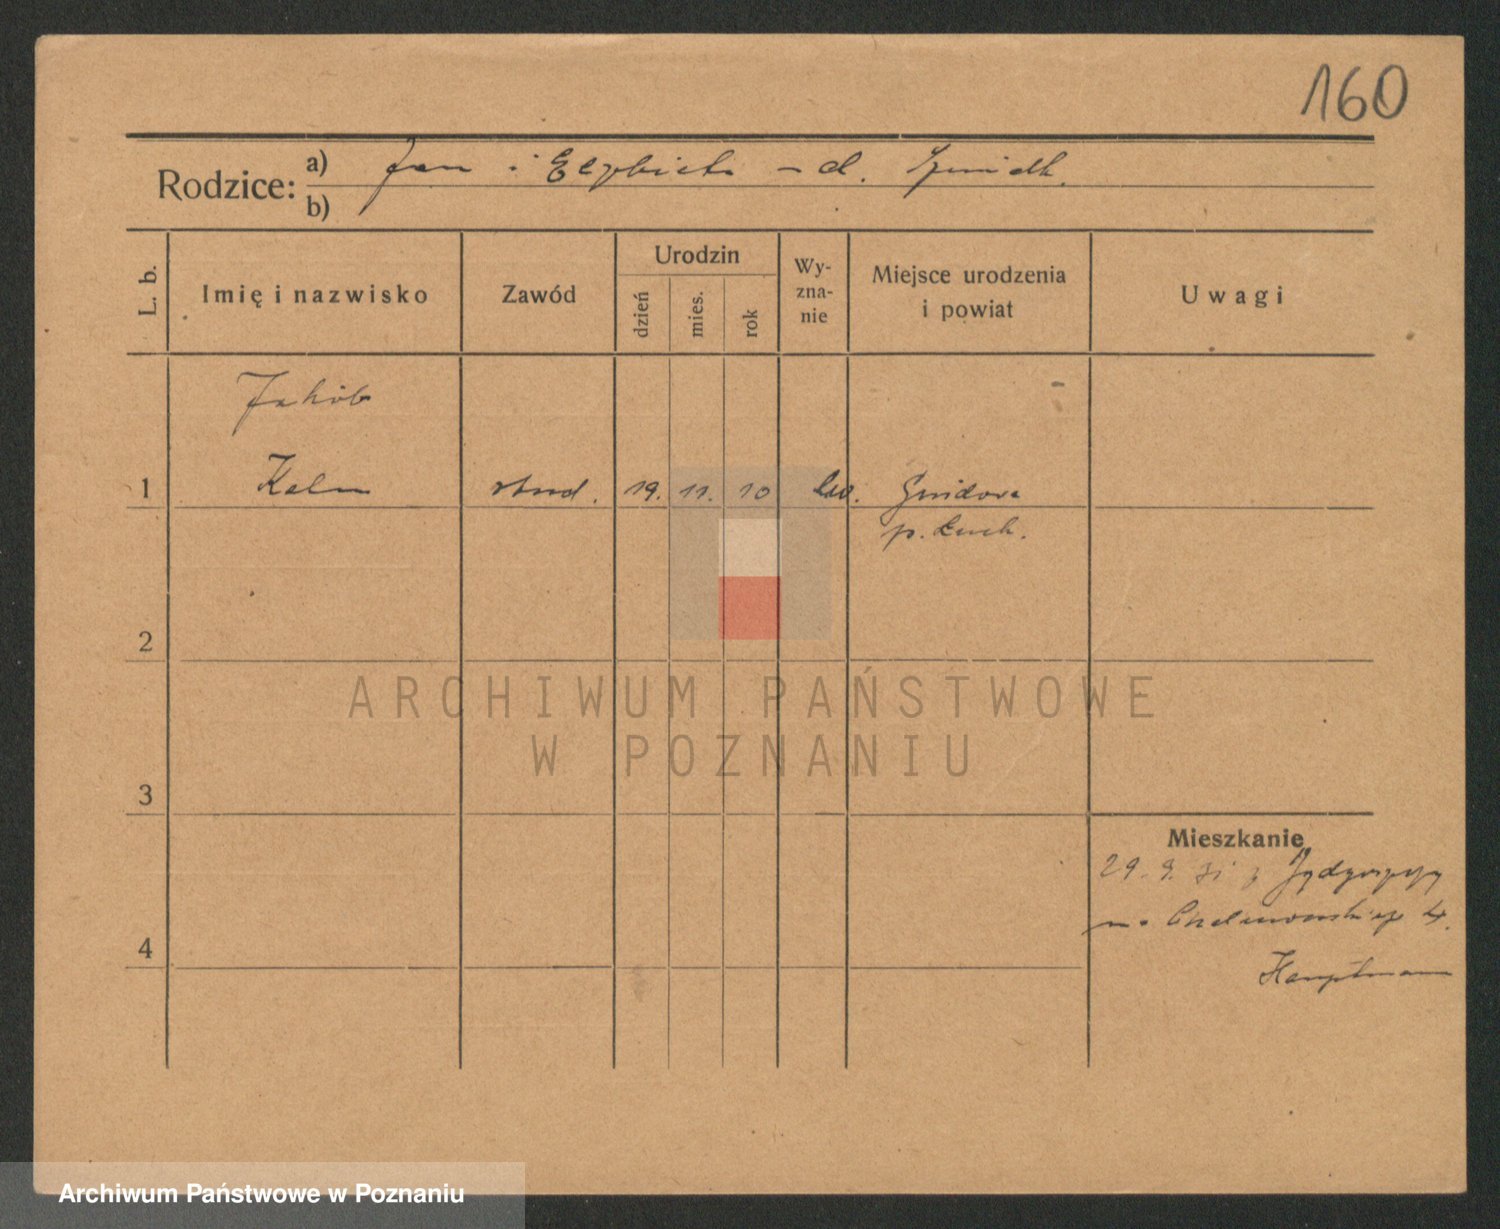 160
Rodzice: a) Jan i Elżbieta - d. Szmidt.
b)
L. b.
Imię i nazwisko
Zawód
Urodzin
dzień
mies.
rok
Wy-
zna-
nie
Miejsce urodzenia
i powiat
Uwagi
Jakób
1 Kalm stud. 19. 11. 10 ew.
p. Łuck.
2
ARCHIWUM PAŃSTWOWE
W POZNANIU
3
Mieszkanie
29. 9. 31 z
na 4.
4
Hauptmann
Archiwum Państwowe w Poznaniu